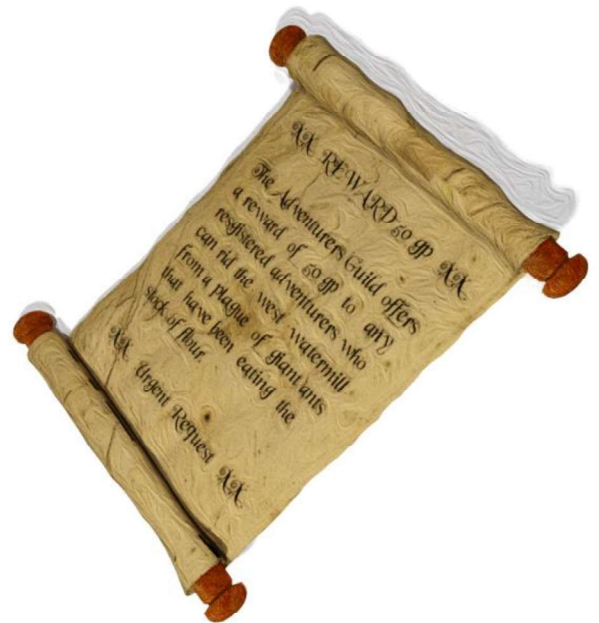 XX REWARD 50 gp XX
The Adventurers Guild offers
a reward of 50 gp to any
resgistered adventurers who
can rid the west watermill
from a plague of giant ants
that have been eating the
stock of flour.
XX Urgent Request XX